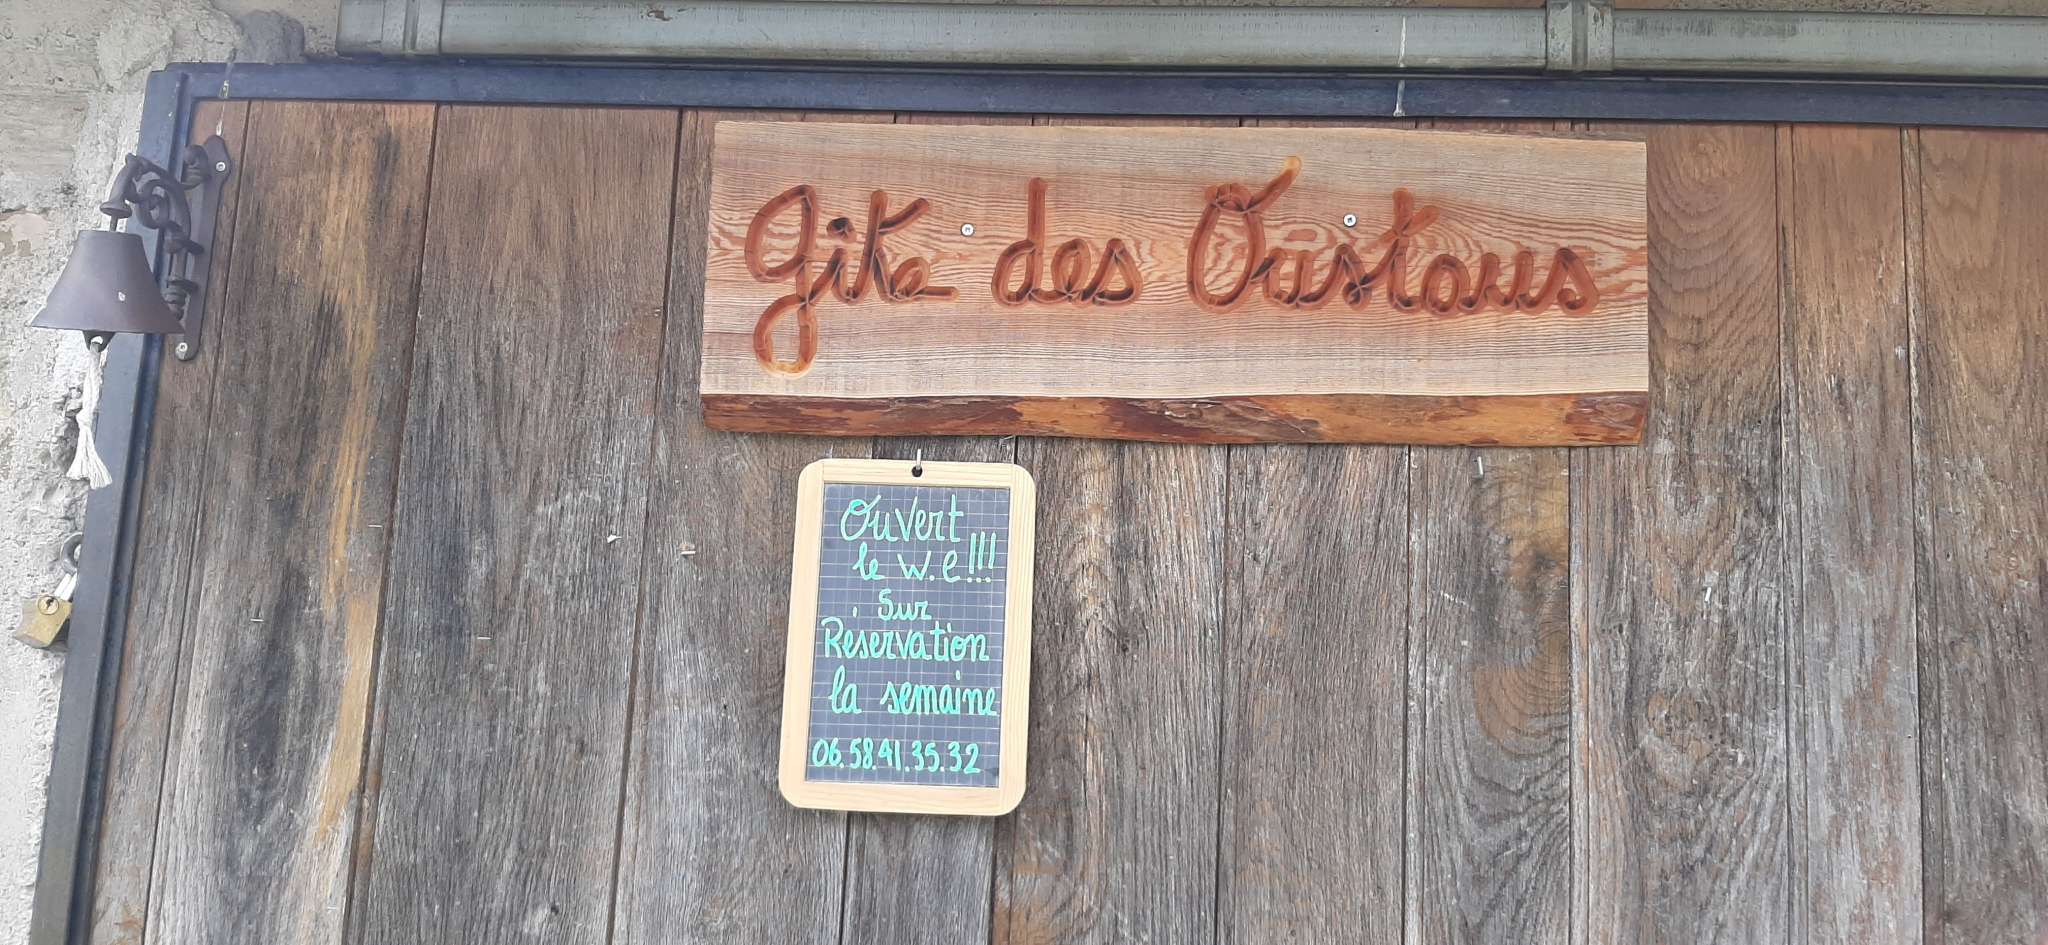 Gite des Oustous
Ouvert
le W.e!!!
Sur
Réservation
la semaine
06.58.41.35.32